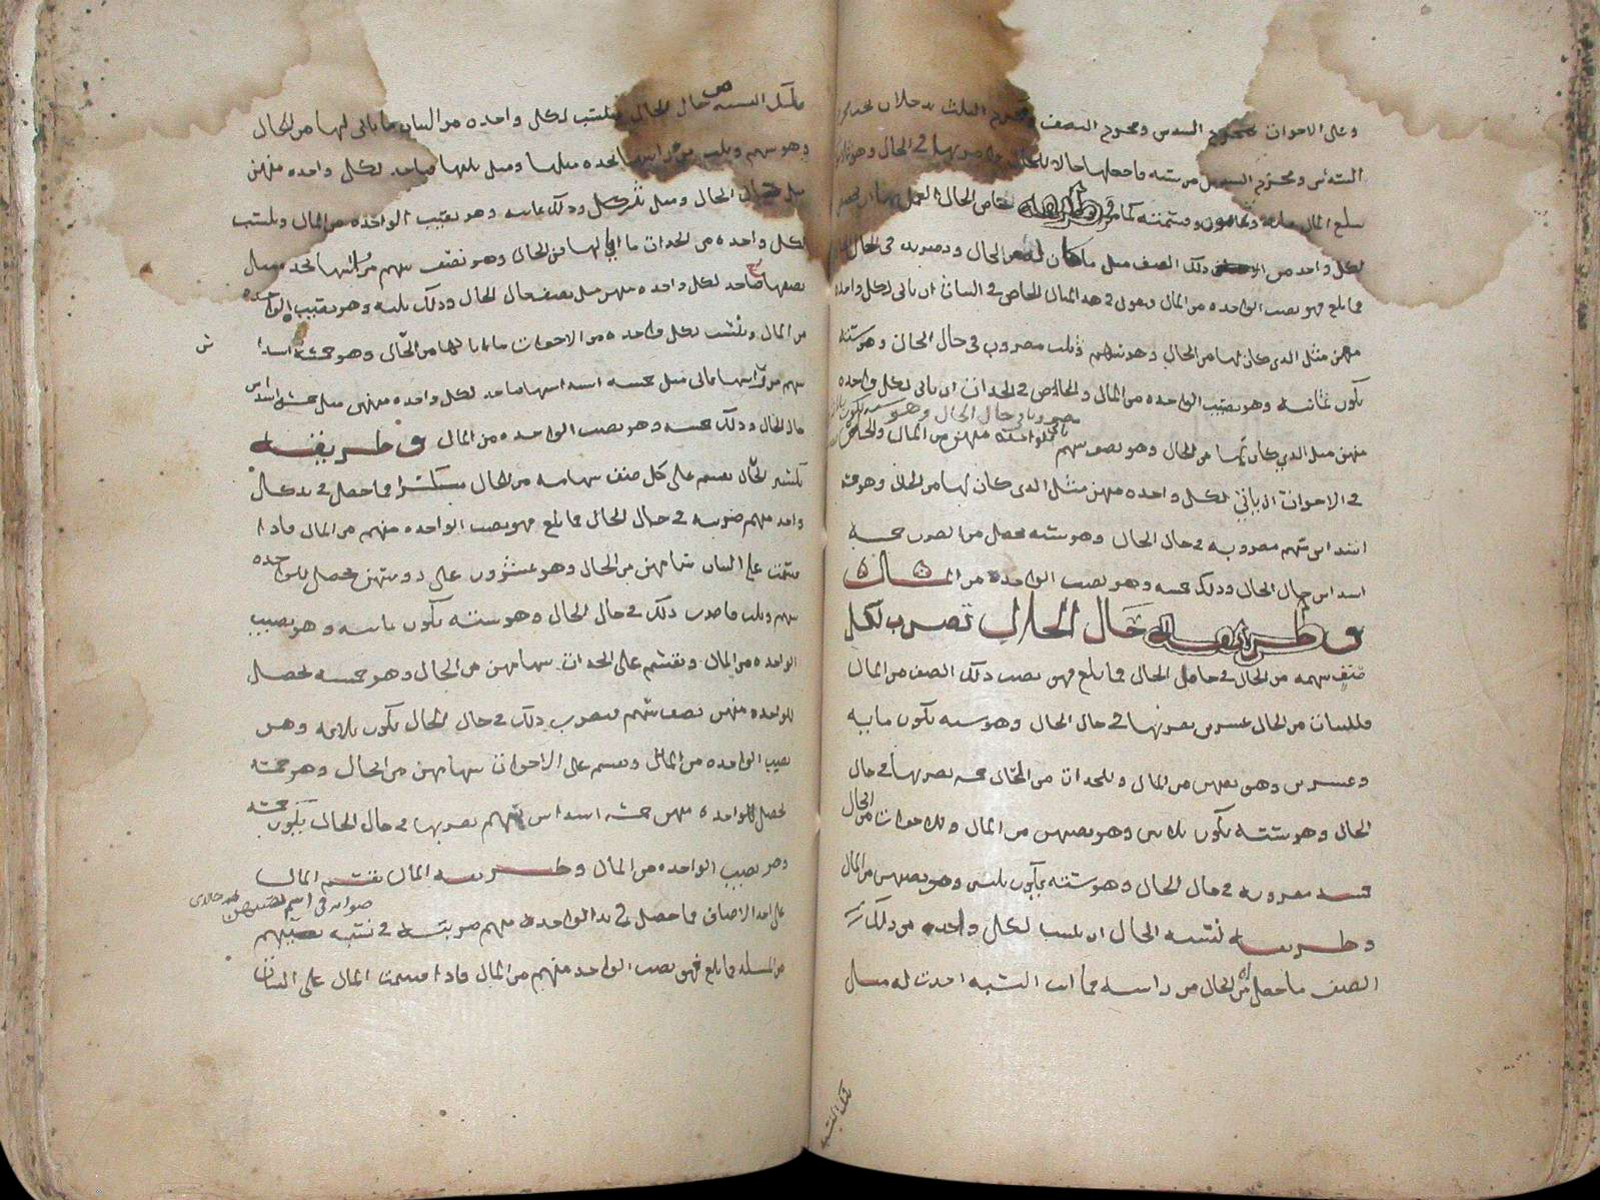 وعلى الاخوات فمخرج السدس ومخرج النصف ومخرج الثلث
الستة من ومخرج السدس من ستة فاجعلها حالا للمال في الحال وهو
تبلغ المال مائة وثمانون وقسمته كما وطريقة خاص الحال العمل بها
لكل واحد من ذلك الصنف مثل ما كان له من الحال ومضروبه في الحال
فما بلغ فهو نصيب الواحده من المال فيقول في هذا المثال الخاص في البنات ان ياتي لكل واحده
منهن مثل الذي كان لها من الحال وهو سهم وثلث مضروب في حال الحال وهو سته
يكون ثمانيه وهو نصيب الواحده من المال والخاص في الجدات ان ياتي لكل واحده
منهن مثل الذي كان لها من الحال وهو نصف سهم مضروبا في حال الحال وهو سته يكون للواحدة منهن من المال والخاص
في الاخوات ان ياتي لكل واحده منهن مثل الذي كان لها من الحال وهو خمسة
اسداس سهم مضروبه في حال الحال وهو سته يحصل من الضرب خمسة
اسداس حال الحال وذلك خمسه وهو نصيب الواحده من المال
وطريقة حال الحال تضرب لكل
صنف سهمه من الحال في حال الحال فما بلغ فهو نصيب ذلك الصنف من المال
فللبنات من الحال عشرين تضربها في حال الحال وهو سته يكون مايه
وعشرين وهو نصيبهن من المال وللجدات من الحال خمسه تضربها في حال
الحال وهو سته يكون ثلاثين وهو نصيبهن من المال وللاخوات من الحال
خمسه مضروبه في حال الحال وهو سته يكون ثلاثين وهو نصيبهن من المال
وطريقة نسبة الحال ان تنسب لكل واحده من ذلك
الصنف ما حصل له من الحال من راسه فما اتت النسبه اخذت له مثل
تلك النسبه
تلك النسبه من حال الحال فتنسب لكل واحده من البنات ما ياتي لها من الحال
وهو سهم وثلث من راسها تجده مثلها ومثل ثلثها فياخذ لكل واحده منهن
مثل حال الحال ومثل ثلث ذلك ثمانيه وهو نصيب الواحده من المال وتنسب
لكل واحده من الجدات ما اتى لها من الحال وهو نصف سهم من راسها تجده مثل
نصفها فياخذ لكل واحده منهن مثل نصف حال الحال وذلك ثلثه وهو نصيب الواحده
من المال وتنسب لكل واحده من الاخوات ما اتى لها من الحال وهو خمسة اسداس
سهم من راسها ياتي مثل خمسه اسداسها فياخذ لكل واحده منهن مثل خمسة اسداس
حال الحال وذلك خمسه وهو نصيب الواحده من المال وطريقة
تكسير الحال تقسم على كل صنف سهامه من الحال منكسرا فما حصل في يد كل
واحد منهم ضربته في حال الحال فما بلغ فهو نصيب الواحده منهم من المال فاذا
قسمت على البنات سهامهن من الحال وهو عشرون على روسهن يحصل للواحده
سهم وثلث فاضرب ذلك في حال الحال وهو سته يكون ثمانيه وهو نصيب
الواحده من المال وتقسم على الجدات سهامهن من الحال وهو خمسه يحصل
للواحده منهن نصف سهم فتضرب ذلك في حال الحال يكون ثلاثه وهو
نصيب الواحده من المال وتقسم على الاخوات سهامهن من الحال وهو خمسة
يحصل للواحده منهن خمسة اسداس سهم تضربها في حال الحال يكون خمسة
وهو نصيب الواحده من المال وطريقة المال تقسم المال
على احد الاصناف فما حصل في يد الواحده منهم ضربته في نسبه نصيبهم
من المسله فما بلغ فهو نصيب الواحد منهم من المال فاذا قسمت المال على البنات